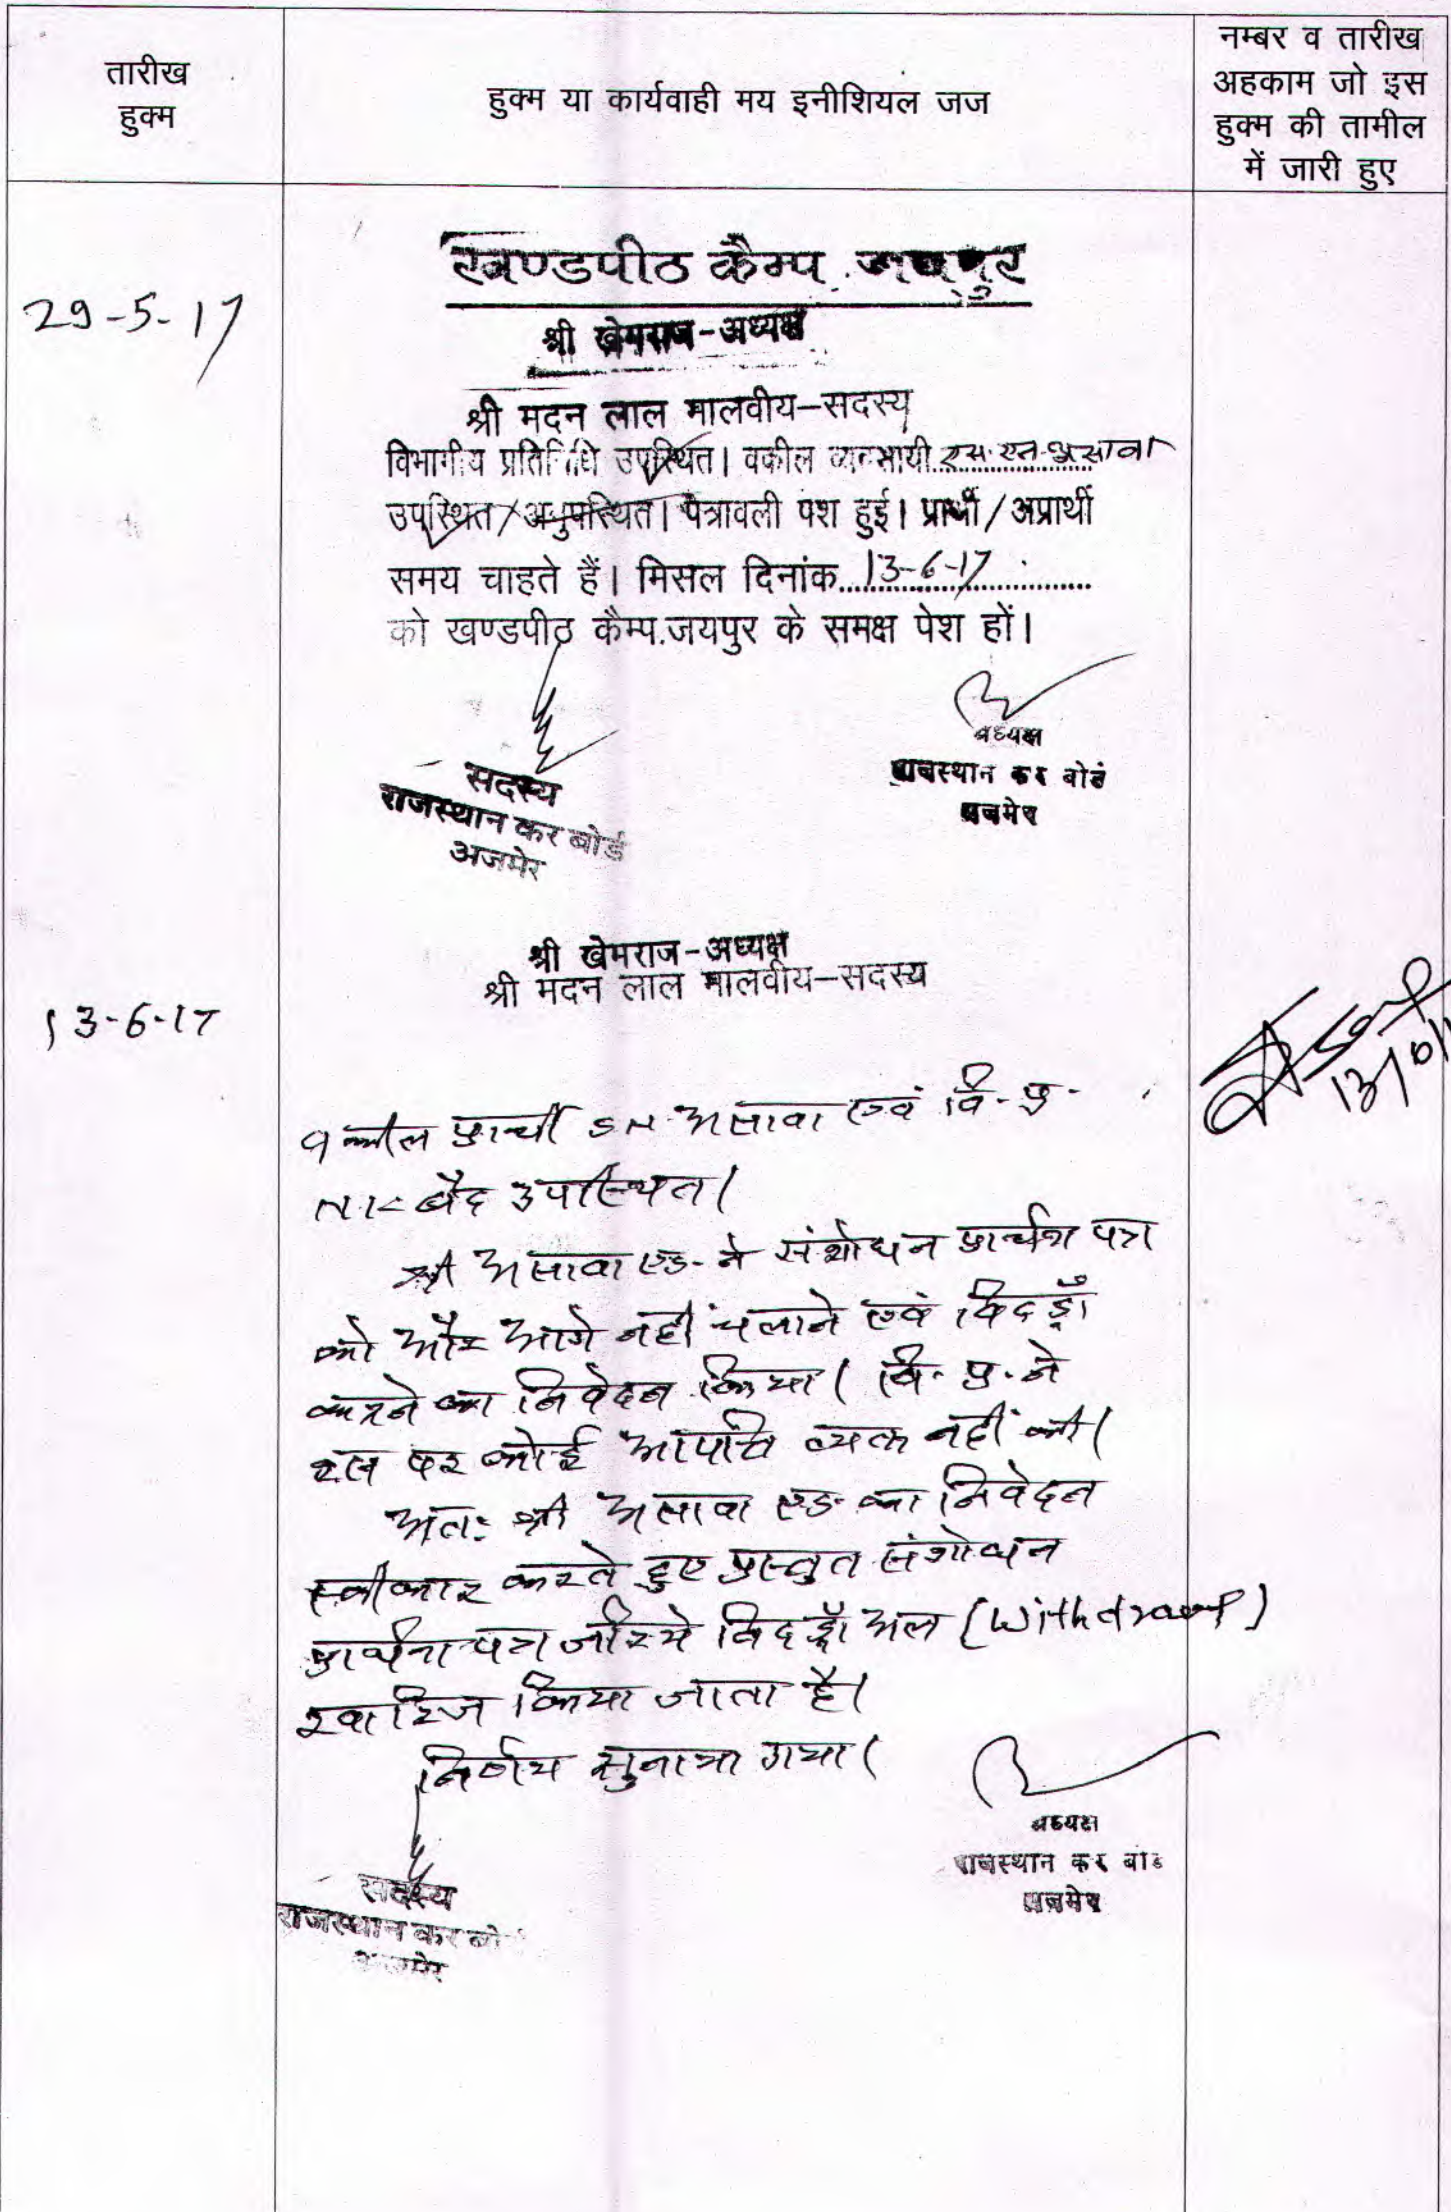 तारीख
हुक्म
हुक्म या कार्यवाही मय इनीशियल जज
नम्बर व तारीख
अहकाम जो इस
हुक्म की तामील
में जारी हुए
29-5-17
खण्डपीठ कैम्प जयपुर
श्री खेमराज-अध्यक्ष
श्री मदन लाल मालवीय–सदस्य
विभागीय प्रतिनिधि उपस्थित। वकील व्यवसायी एस.एन.असावा
उपस्थित/अनुपस्थित। पत्रावली पेश हुई। प्रार्थी/अप्रार्थी
समय चाहते हैं। मिसल दिनांक 13-6-17
को खण्डपीठ कैम्प.जयपुर के समक्ष पेश हों।
सदस्य
राजस्थान कर बोर्ड
अजमेर
अध्यक्ष
राजस्थान कर बोर्ड
अजमेर
श्री खेमराज-अध्यक्ष
श्री मदन लाल मालवीय–सदस्य
13-6-17
13/6/1
वकील प्रार्थी असावा एवं वि. प्र.
बैद उपस्थित।
श्री असावा एड. ने संशोधन प्रार्थना पत्र
को और आगे नहीं चलाने एवं विदड्रॉ
करने का निवेदन किया। वि. प्र. ने
इस पर कोई आपत्ति व्यक्त नहीं की।
अतः श्री असावा एड. का निवेदन
स्वीकार करते हुए प्रस्तुत संशोधन
प्रार्थना पत्र जरिये विदड्रॉअल (Withdrawal)
खारिज किया जाता है।
निर्णय सुनाया गया।
सदस्य
राजस्थान कर बो
अजमेर
अध्यक्ष
राजस्थान कर बोर्ड
अजमेर